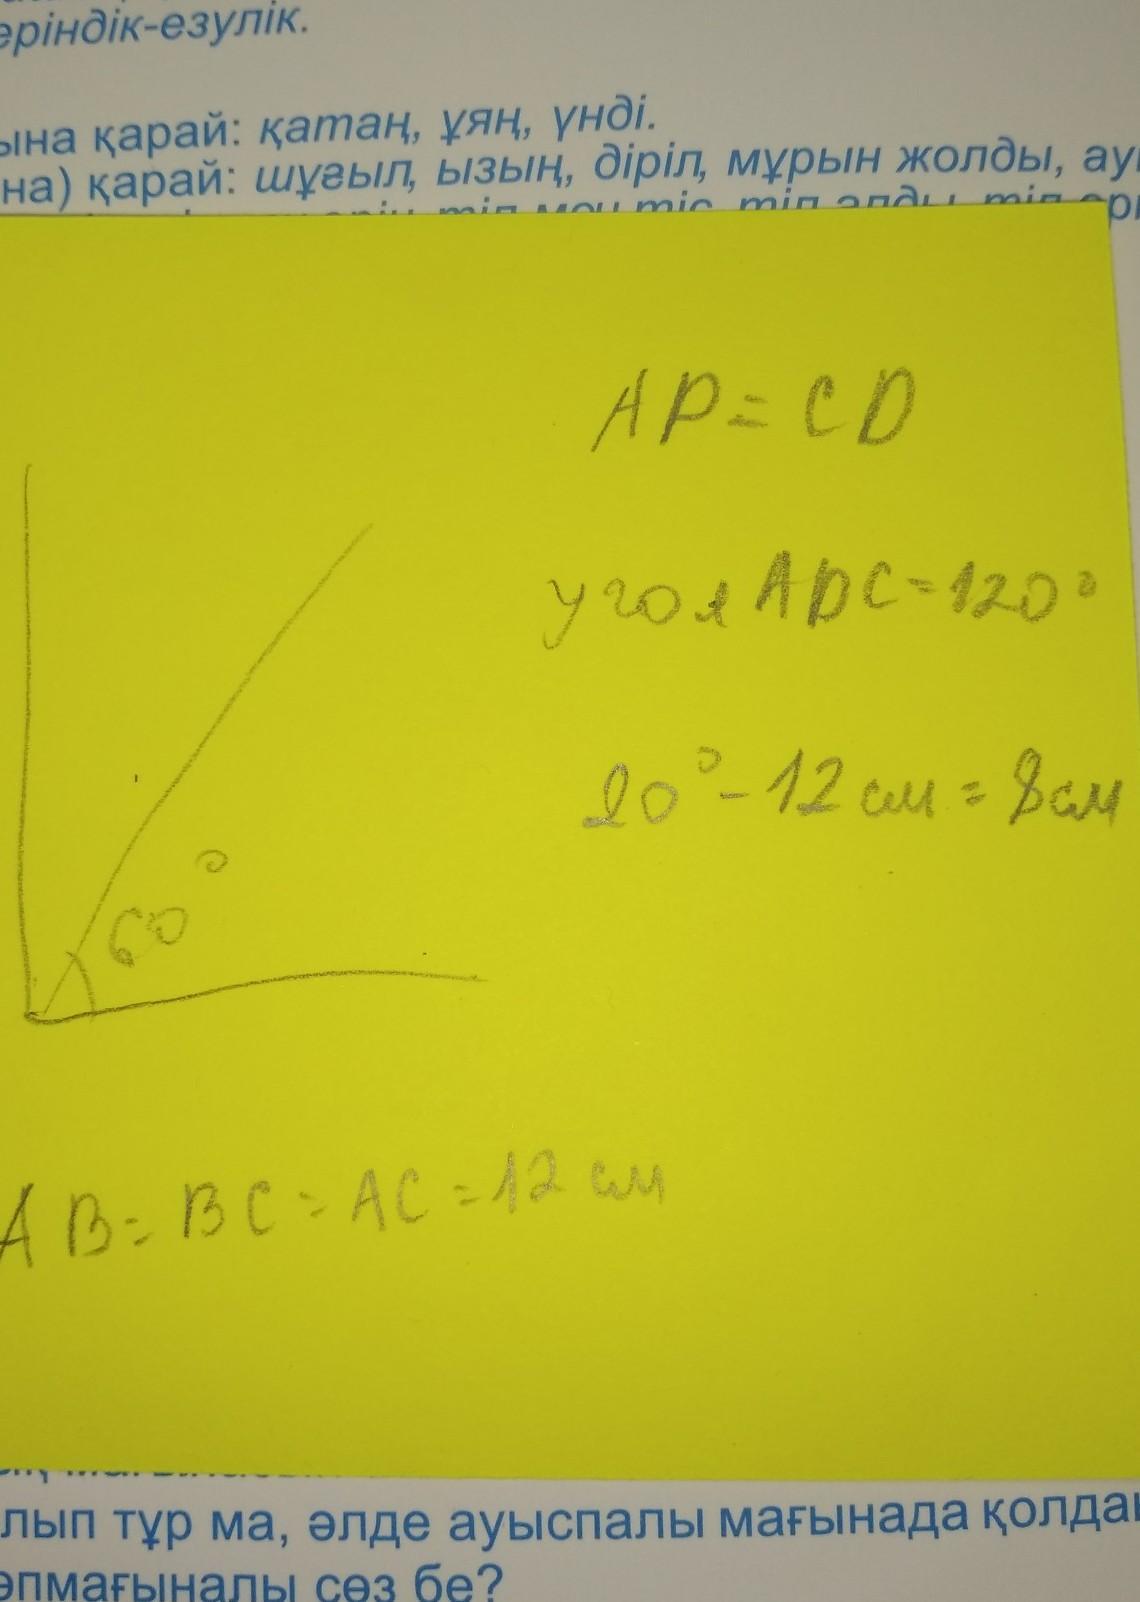 еріндік-езулік.
ына қарай: қатаң, ұяң, үнді.
на) қарай: шұғыл, ызың, діріл, мұрын жолды, ау
AD = CD
угол ADC = 120°
20° - 12 см = 8 см
60°
AB = BC = AC = 12 см
лып тұр ма, әлде ауыспалы мағынада қолда
өпмағыналы сөз бе?